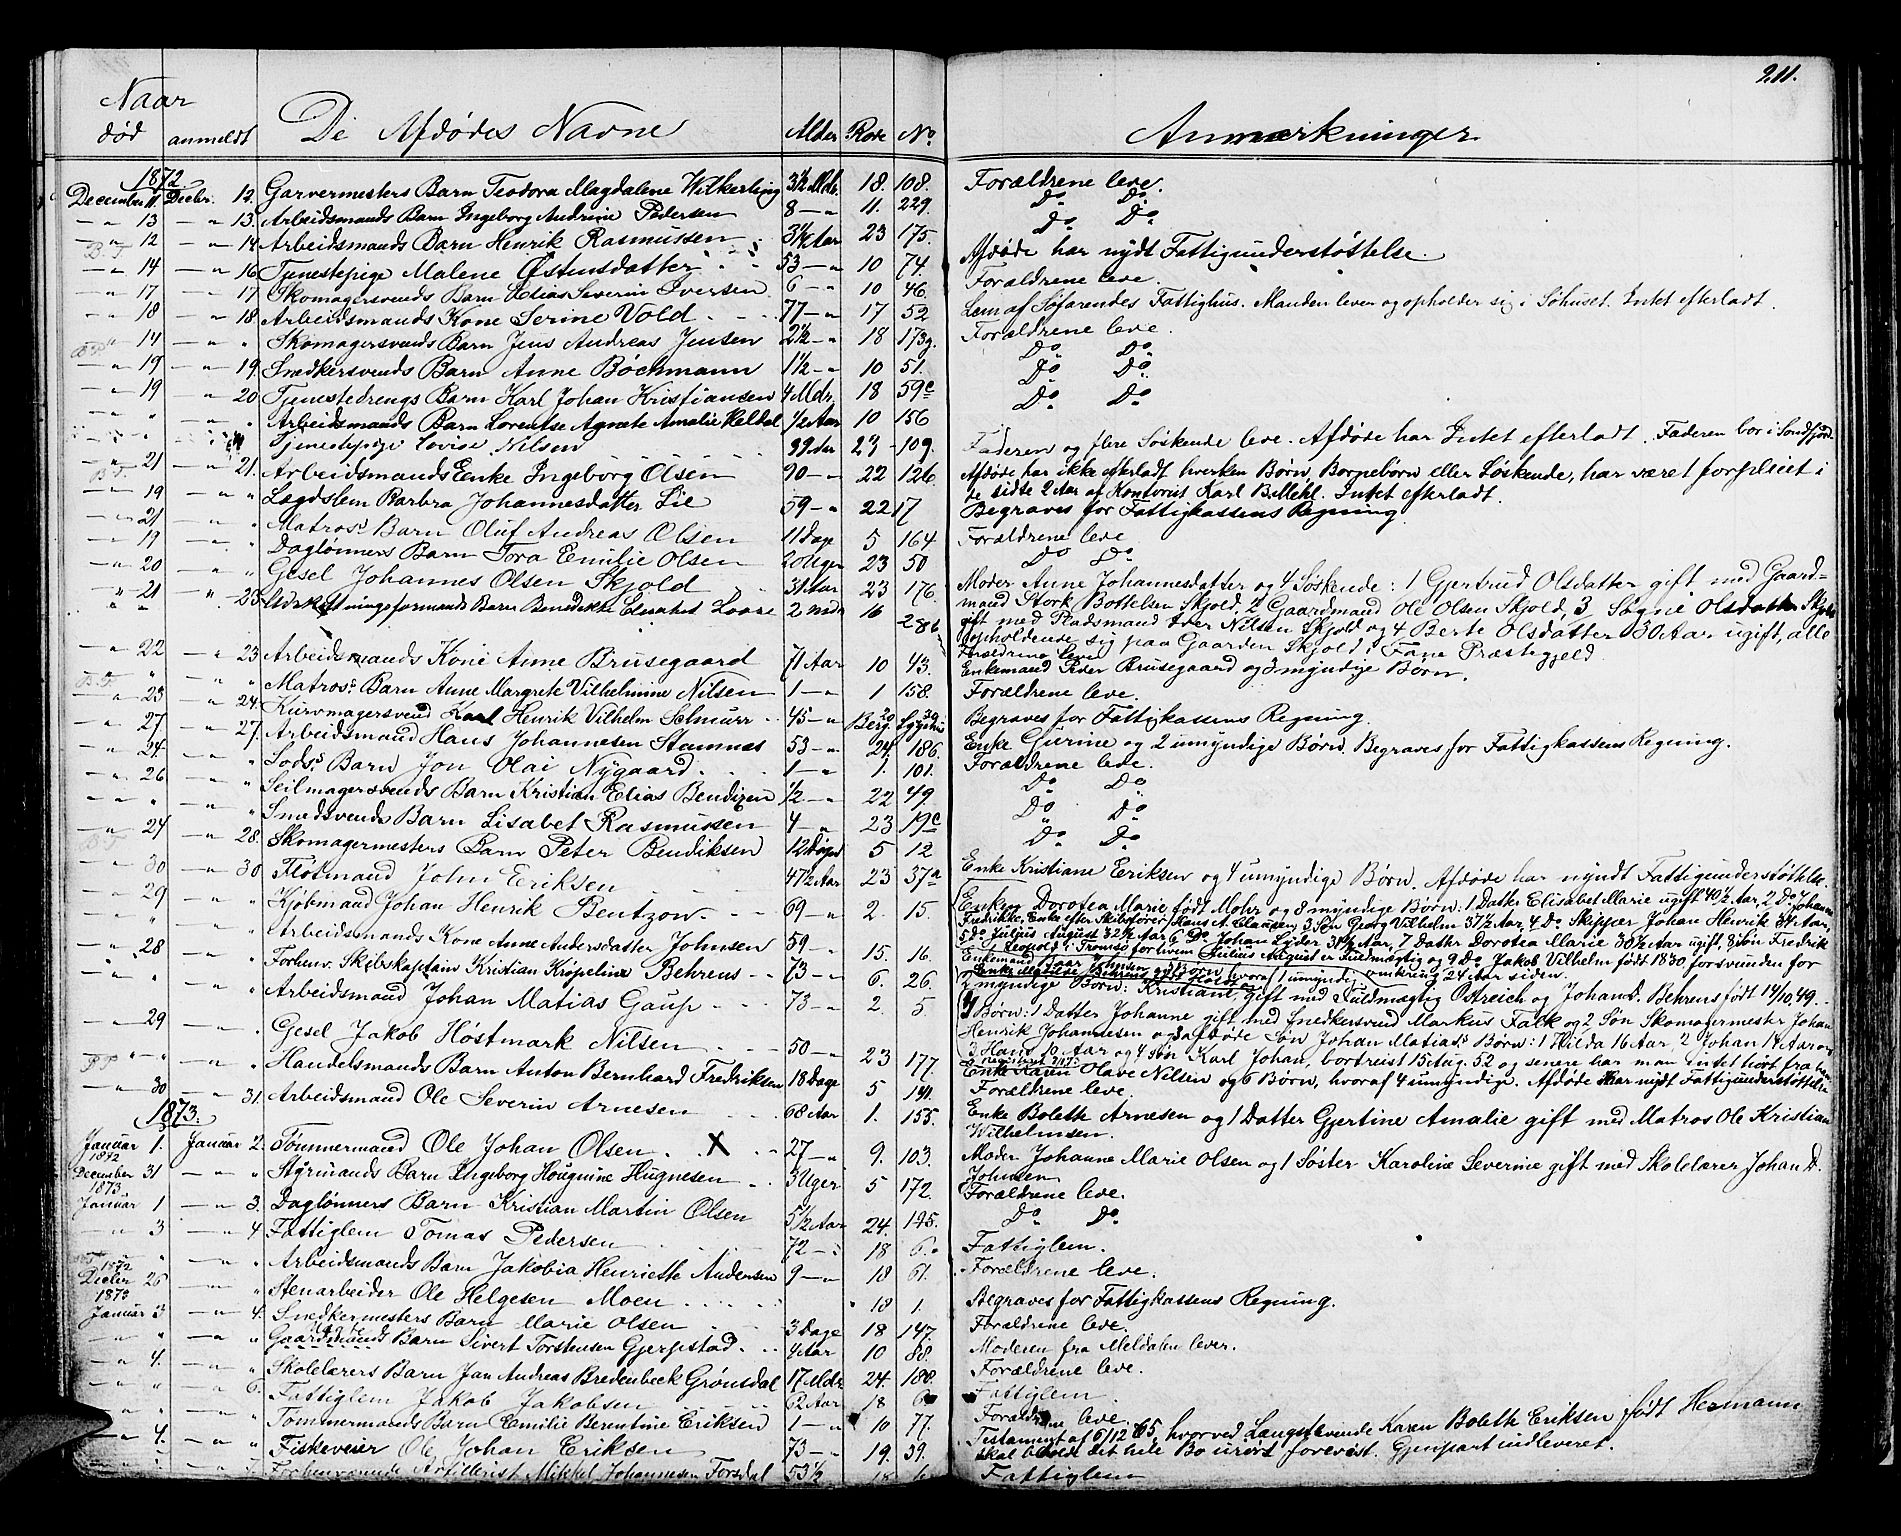 211.
Naar
død anmeldt De Afdødes Navne Alder Rode No Anmærkninger
1872
December 11 Decbr. 12. Garvermesters Barn Teodora Magdalene Wilkerling 3½ Mdr. 18. 108. Forældrene leve.
" 13 " 13. Arbeidsmands Barn Ingeborg Andrine Pedersen 8 " 11. 229. Do Do
" 12 " 14 Arbeidsmands Barn Henrik Rasmussen 3½ Aar 23 175. Do Do
" 14 " 16 Tjenestepige Malene Østensdatter 53 " 10 74. Afdøde har nydt Fattigunderstøttelse.
" 17 " 17 Skomagersvends Barn Elias Severin Iversen 6 " 10 46. Forældrene leve.
" 18 " 18. Arbeidsmands Kone Serine Vold 77 " 17 52 Lem af Søfarendes Fattighus. Manden lever og opholder sig i Søhuset. Intet efterladt.
" 14 " " Skomagersvends Barn Jens Andreas Jensen 2½ " 18 173g. Forældrene leve.
" 19 " 19. Snedkersvends Barn Anne Bøchmann 1½ " 10 51. Do Do
" 19 " 20 Tjenestedrengs Barn Karl Johan Kristiansen 4 Mdr. 18 59c Do Do
" " " Arbeidsmands Barn Lorentse Agnete Amalie Heldal ½ Aar 10 156 Do Do
Tjenestepige Lovise Nilsen 22 Aar 23 109. Faderen og flere Søskende leve. Afdøde har Intet efterladt. Faderen bor i Søndfjord
" 21 " 21. Arbeidsmands Enke Ingeborg Olsen 90 " 22 126 Afdøde har ikke efterladt hverken Børn, Børnebørn eller Søskende, har været forpleiet i
de sidte 2 Aar af Kontorist Karl B. Mehl. Intet efterladt.
" 19 " " Lægdslem Barbra Johannesdatter Lie 59 " 22 17 Begraves for Fattigkassens Regning.
" 21 " Matros's Barn Oluf Andreas Olsen 11 Dage 5 164 Forældrene leve
" 19 " Daglønners Barn Tora Emilie Olsen 20 Uger 23 50 Do Do
" 20 " " Gesel Johannes Olsen Skjold 31 Aar 23 176. Moder Anne Johannesdatter og 4 Søskende: 1 Gjertrud Olsdatter gift med Gaard-
" 21 " 23 Udskibningsformands Barn Benedikte Elisabet Loose 2 Mdr 16 286 mand Stork Bottelsen Skjold, 2 Gaardmand Ole Olsen Skjold, 3, Søgne Olsdatter Skjold
gift med Pladsmand Iver Nilsen Skjold og 4 Berte Olsdatter 30 Aar ugift, alle
opholdende sig paa Gaarden Skjold i Fane Præstegjeld.
Forældrene leve.
" 22 " 23 Arbeidsmands Kone Anne Brusegaard 71 Aar 10 43. Enkemand Peder Brusegaard og 3 myndige Børn.
" " " Matros's Barn Anne Margrete Vilhelmine Nilsen 1 " 1 158. Forældrene leve.
" 23 " 24. Kurvmagersvend Karl Henrik Vilhelm Schnurr 45 " Begraves for Fattigkassens Regning.
" 27 " 27. Arbeidsmand Hans Johannesen Stamnes 53 " 24. 186. Enke Gurine og 2 umyndige Børn. Begraves for Fattigkassens Regning.
" 24. " Lods's Barn Jon Olai Nygaard 1 " 1. 101. Forældrene leve.
" 26 " " Seilmagersvends Barn Kristian Elias Bendixen ½ " 22 49. Do Do
" " " Smedsvends Barn Lisabet Rasmussen 4 " 23 19c Do Do
" 24 " 28. Skomagermesters Barn Peter Bendiksen 12 Dage 5 12 Do Do
" 30 " 30 Flotmand John Eriksen 47½ Aar 23 37a Enke Kristiane Eriksen og 4 umyndige Børn. Afdøde har nyndt Fattigunderstøttelse.
" 29 " Kjøbmand Johan Henrik Bentzow 69 " 2. 15. Enken Dorotea Marie født Mohr og 8 myndige Børn: 1 Datter Elisabet Marie ugift 40½ Aar, 2 Do Johanne
Fredrikke, Enke efter Skibsfører Hans A. Clausen, 3 Søn Georg Vilhelm 37½ Aar, 4 Do Skipper Johan Henrik 34 Aar,
5 Do Julius August 32½ Aar, 6 Do Johan Lyder 31½ Aar, 7 Datter Dorotea Marie 30½ Aar ugift, 8 Søn Fredrik
Leopold i Tromsø for hvem Julius August er Fuldmægtig og 9 Do Jakob Vilhelm født 1830 forsvunden for
omkring 24 Aar siden.
" " Arbeidsmands Kone Anne Andersdatter Johnsen 59 " 15. 16. Enkemand Baar Johnsen og Børn, hvoraf 1 umyndig
" 28 " Forhenv. Skibskaptein Kristian Krøpeline Behrens 73 " 6. 26. 2 myndige Børn: Kristiane gift med Fuldmægtig Ostreich og Johan D. Behrens født 14/10. 49.
" " " Arbeidsmand Johan Matias Gaup 73 " 2. 5. 4 Børn: 1 Datter Johanne gift med Snedkersvend Markus Falk og 2 Søn Skomagermester Johan
Henrik Johannesen og 3 afdøde Søn Johan Matias's Børn: 1 Hilda 16 Aar, 2 Johan 14 Aar og
3 Hans 10 Aar og 4 Søn Karl Johan, bortreist 15 Aug. 52 og senere har man intet hørt fra ham
" 29 " Gesel Jakob Høstmark Nilsen 50 " 23 177. Enke Karen Olave Nilsen og 6 Børn, hvoraf 4 umyndige. Afdøde har nydt Fattigunderstøttelse
" " " Handelsmands Barn Anton Bernhard Fredriksen 18 Dage 5 141. Forældrene leve.
" 30 " 31. Arbeidsmand Ole Severin Arnesen 68 Aar 1. 155. Enke Boleth Arnesen og 1 Datter Gjertine Amalie gift med Matros Ole Kristian
Wilhelmsen.
1873.
Januar 1. Januar 2. Tømmermand Ole Johan Olsen X 27 " 9. 103. Moder Johanne Marie Olsen og 1 Søster Karoline Severine gift med Skolelærer Johan D.
Johnsen
1872
December 31 " " Styrmands Barn Ingeborg Hougnine Hugnesen 3 Uger 5 172. Forældrene leve.
1873.
Januar 1 " 3. Daglønners Barn Kristian Martin Olsen 5½ Aar 24. 195. Do Do
" 3 " 4. Fattiglem Tomas Pedersen 72 " 18 6. Fattiglem.
" " " Arbeidsmands Barn Jakobia Henriette Andersen 9 " 18 61. Forældrene leve.
1872
Decbr 25 " " Stenarbeider Ole Helgesen Moen 18 1. Begraves for Fattigkassens Regning.
1873
Januar 3 " 4. Snedkermesters Barn Marie Olsen 3 Dage 18 147. Forældrene leve.
" " " Gaardmands Barn Sivert Torstensen Gjerpstad 4 Aar 10 88. Moderen fra Meldalen lever.
" 4. " " Skolelærers Barn Jan Andreas Bredenbeck Grønsdal 17 Mdr. 24. 188. Forældrene leve.
" " 6. Fattiglem Jakob Jakobsen 62 Aar 18 6 Fattiglem
" " " Tømmermands Barn Emilie Berentine Eriksen 1 " 10 77. Forældrene leve.
" 4. " " Fiskeveier Ole Johan Eriksen 73 " 19. 39. Testament af 6/12 65, hvorved Længstlevende Karen Boleth Eriksen født Hermann
skal beholde det hele Bo urørt forevist. Gjenpart indleveret.
Forhenværende Artillerist Mikkel Johannesen Forsdal 53½ 18 6 Fattiglem